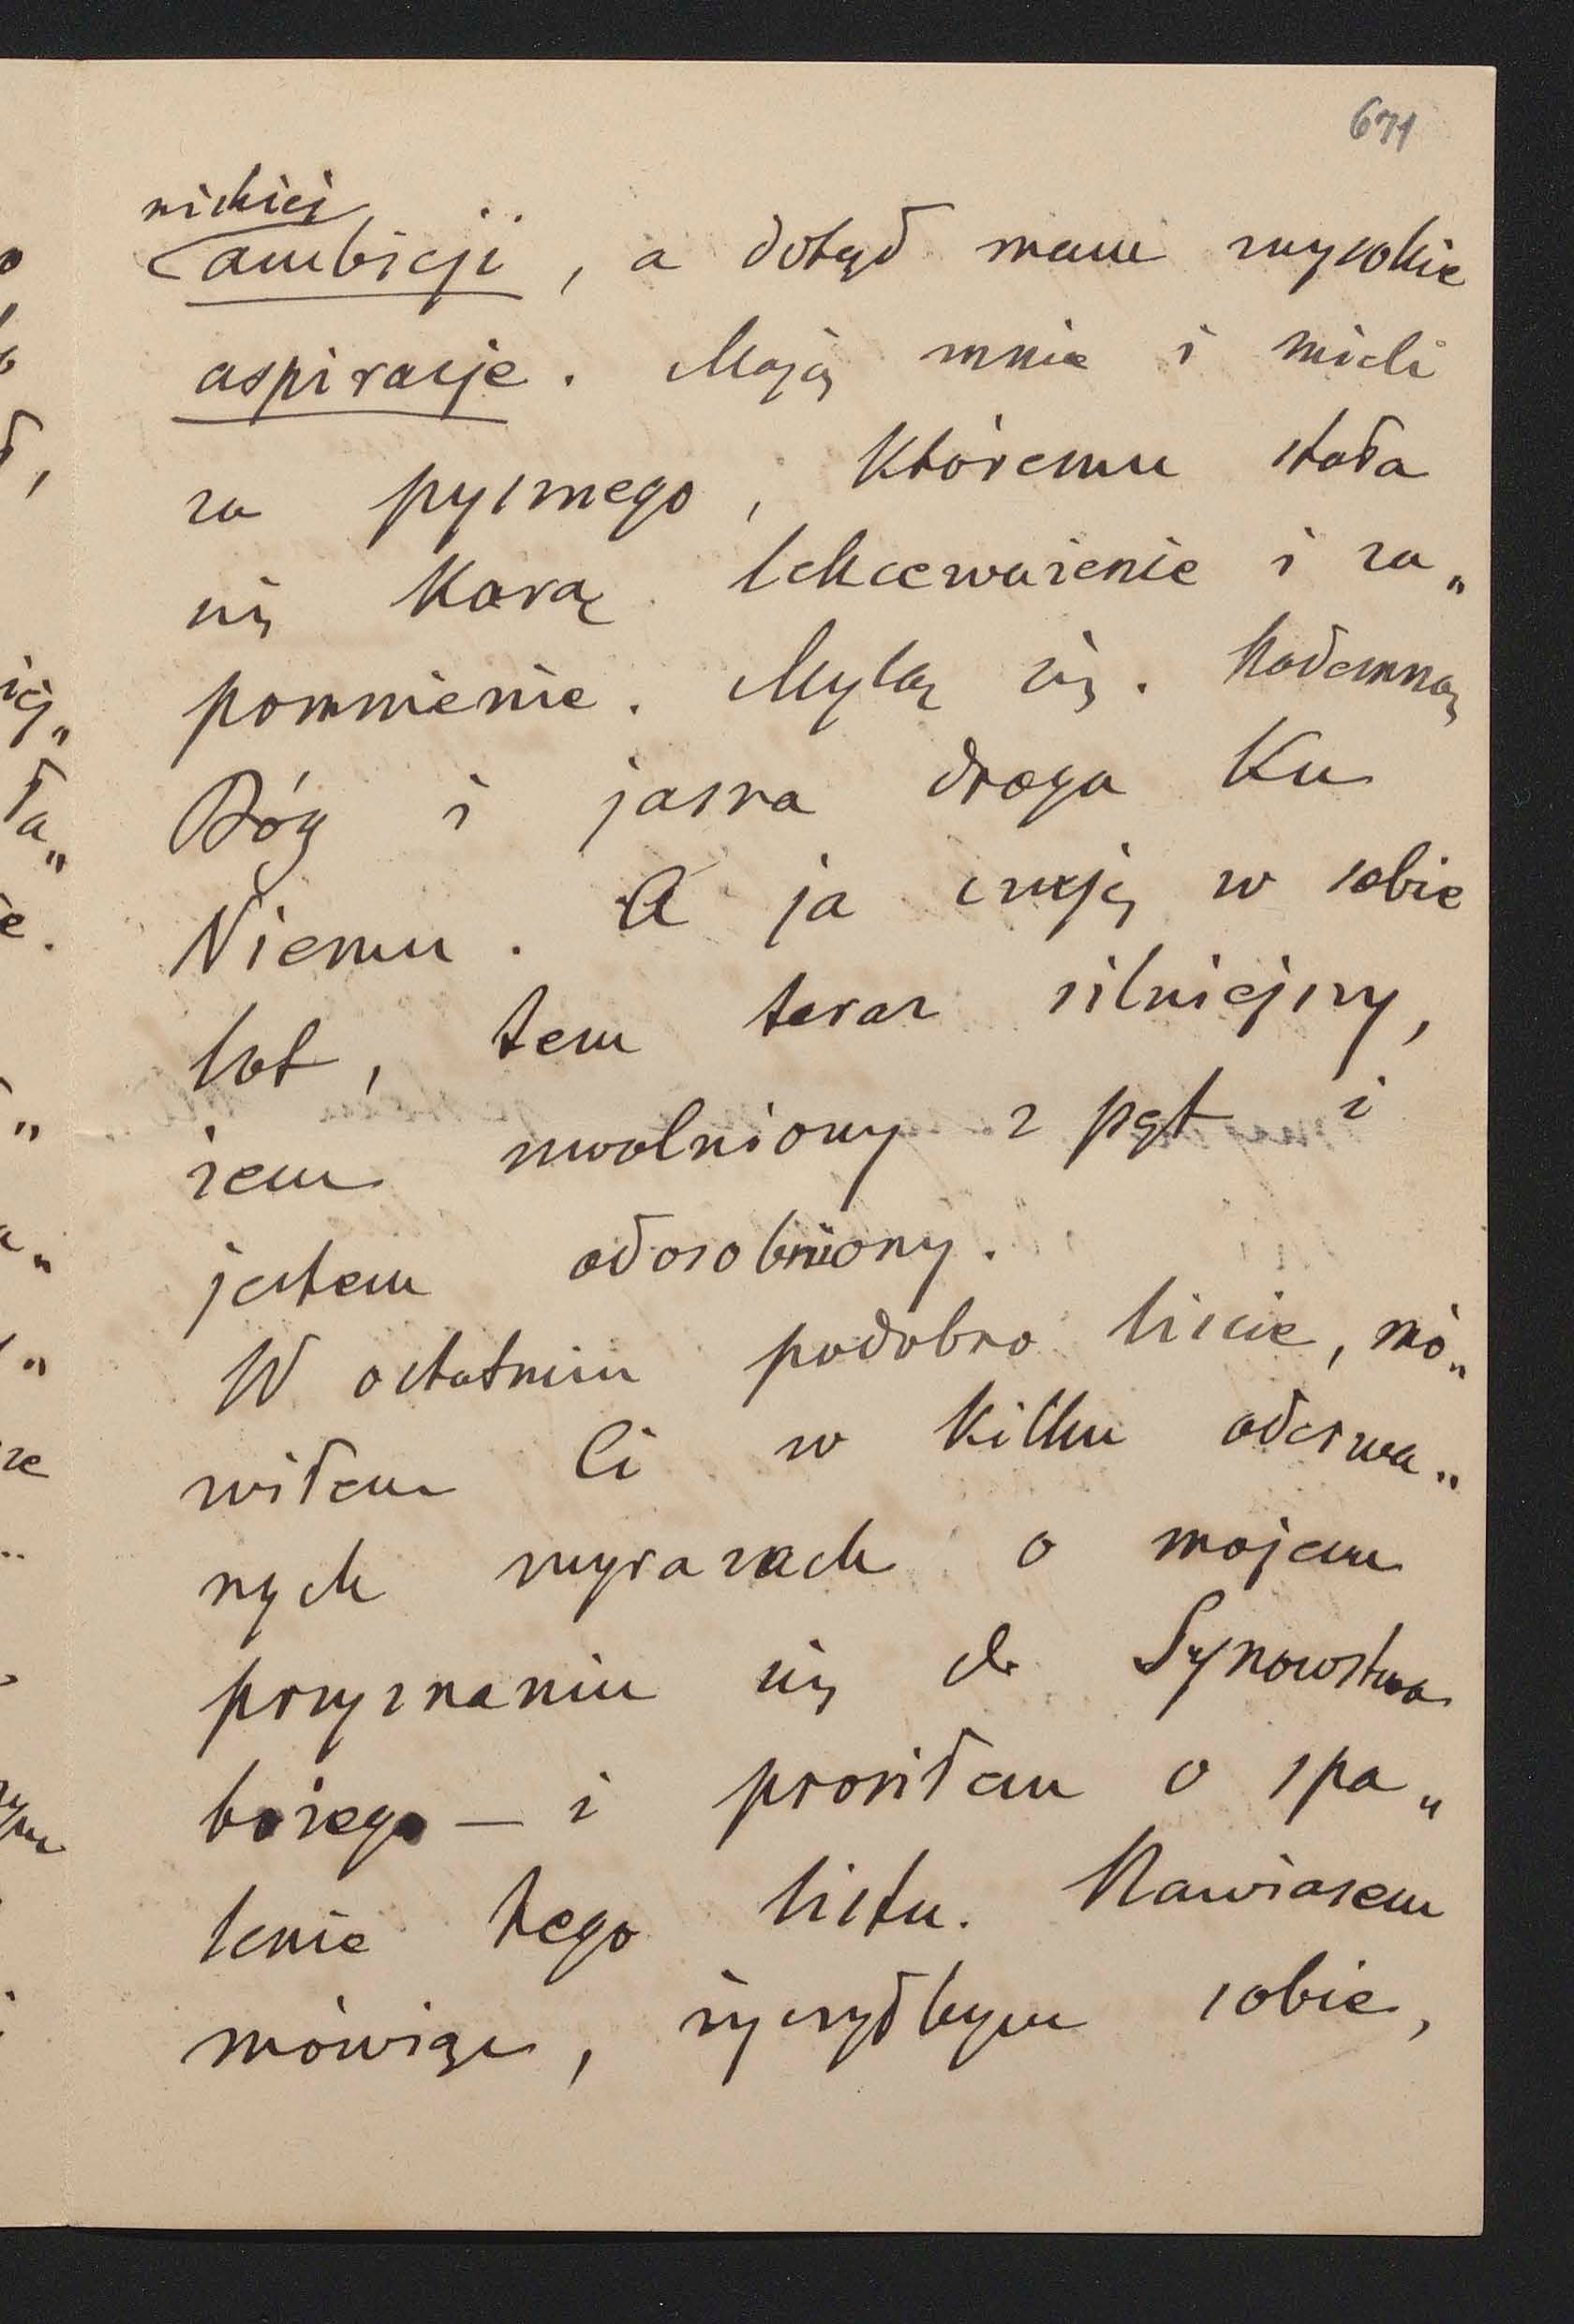 671
niskiej
ambicji, a dotąd mam wysokie
aspiracje. Mają mnie i mieli
za pysznego, któremu stała
się karą lekceważenie i za„
pomnienie. Mylą się. Nademną
Bóg i jasna droga ku
Niemu. A ja czuję w sobie
lot, tem teraz silniejszy,
żem uwolniony z pęt i
jestem odosobniony.
W ostatnim podobno liście, mó„
wiłem Ci w kilku oderwa„
nych wyrazach o mojem
przyznaniu się do Synowstwa
bożego — i prosiłem o spa„
lenie tego listu. Nawiasem
mówiąc, życzyłbym sobie,